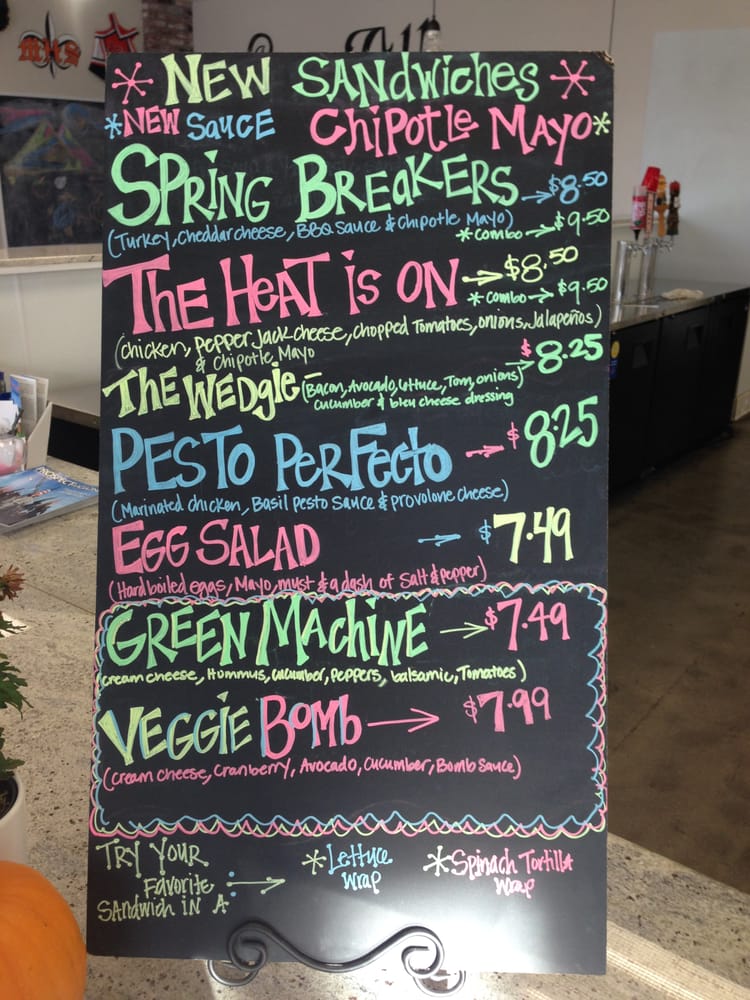 MHS
* NEW SANdwiches *
*NEW Sauce Chipotle Mayo*
Spring Breakers → $8.50
(Turkey, Cheddar cheese, BBQ Sauce & Chipotle Mayo) *combo → $9.50
The Heat is on → $8.50
*combo → $9.50
(chicken, Pepper Jack cheese, chopped Tomatoes, onions, Jalapeños)
& Chipotle Mayo
$8.25
The Wedgie – (Bacon, Avocado, lettuce, Tom, onions)
cucumber & bleu cheese dressing
Pesto Perfecto → $8.25
(Marinated chicken, Basil pesto Sauce & provolone cheese)
Egg Salad → $7.49
(Hardboiled eggs, Mayo, must & a dash of Salt & pepper)
Green Machine → $7.49
cream cheese, Hummus, cucumber, peppers, balsamic, Tomatoes)
Veggie Bomb → $7.99
(cream cheese, Cranberry, Avocado, Cucumber, Bomb Sauce)
Try Your *Lettuce *Spinach Tortilla
Favorite → wrap wrap
Sandwich in A